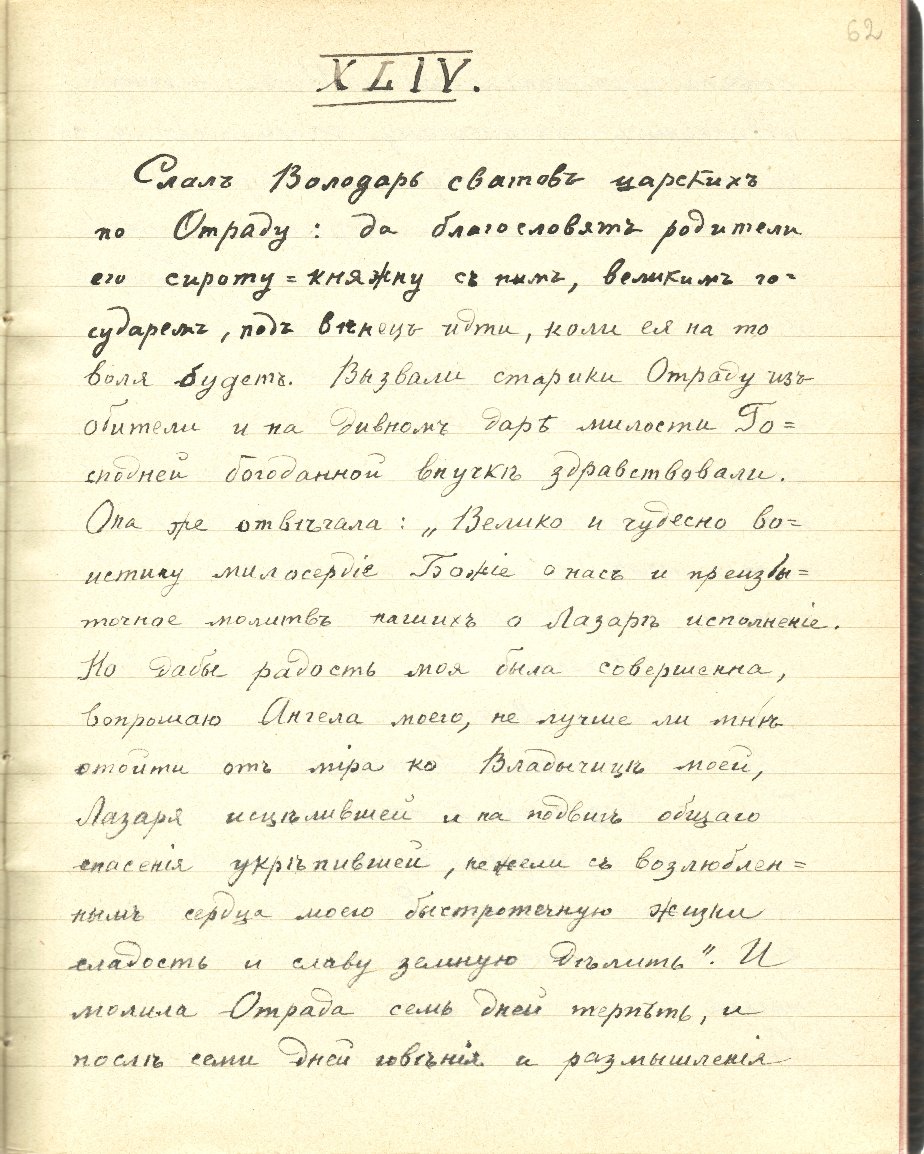 62
XLIV.
Слалъ Володарь сватовъ царскихъ
по Отраду: да благословятъ родители
его сироту=княжну съ нимъ, великимъ го-
сударемъ, подъ вѣнецъ идти, коли ея на то
воля будетъ. Вызвали старики Отраду изъ
обители и на дивномъ дарѣ милости Го=
сподней богоданной внучкѣ здравствовали.
Она же отвѣчала: „Велико и чудесно во=
истину милосердіе Божіе о насъ и преизбы=
точное молитвъ нашихъ о Лазарѣ исполненіе.
Но дабы радость моя была совершенна,
вопрошаю Ангела моего, не лучше ли мнѣ
отойти отъ міра ко Владычицѣ моей,
Лазаря исцѣлившей и на подвигъ общаго
спасенія укрѣпившей, нежели съ возлюблен=
нымъ сердца моего быстротечную жизни
сладость и славу земную дѣлить". И
молила Отрада семь дней терпѣть, и
послѣ семи дней говѣнія и размышленія